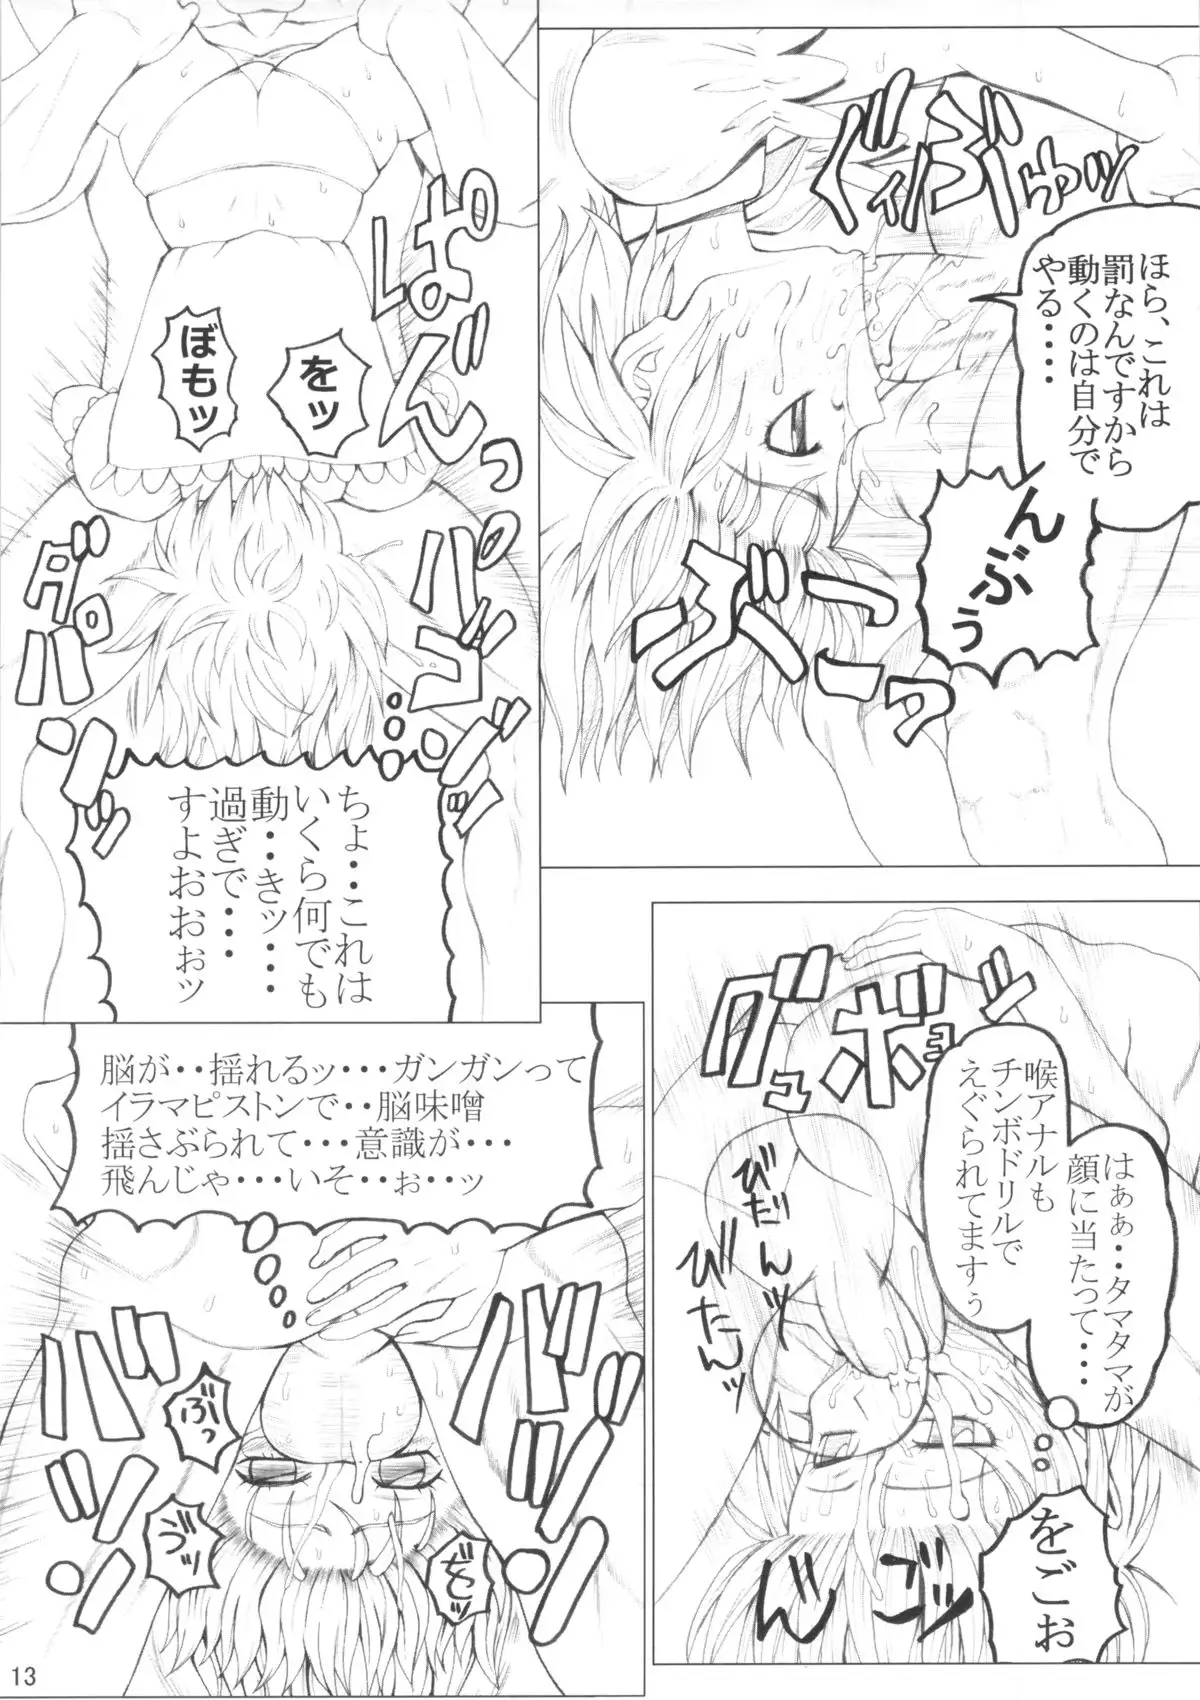 ぐぃぶゅッ
ほら、これは
罰なんですから
動くのは自分で
やる・・・・
んぶぅ
ぶつっつ
ぱんっ
をッ
ぼもッ
パゴンッ
ダパンッ
ちょ・・これは
いくら何でも
動・・きッ・・・
過ぎで・・・・
すよおおぉッ
グュボョンッ
はぁぁ・・タマタマが
顔に当たって・・・・
喉アナルも
チンボドリルで
えぐられてますぅ
びだんッ
びたんッ
をごぉ
ゴンッ
脳が・・揺れるッ・・・ガンガンって
イラマピストンで・・脳味噌
揺さぶられて・・・意識が・・・
飛んじゃ・・・いそ・・ぉ・・ッ
バドンッ
バヂンッ
ぶっ
づッ
13